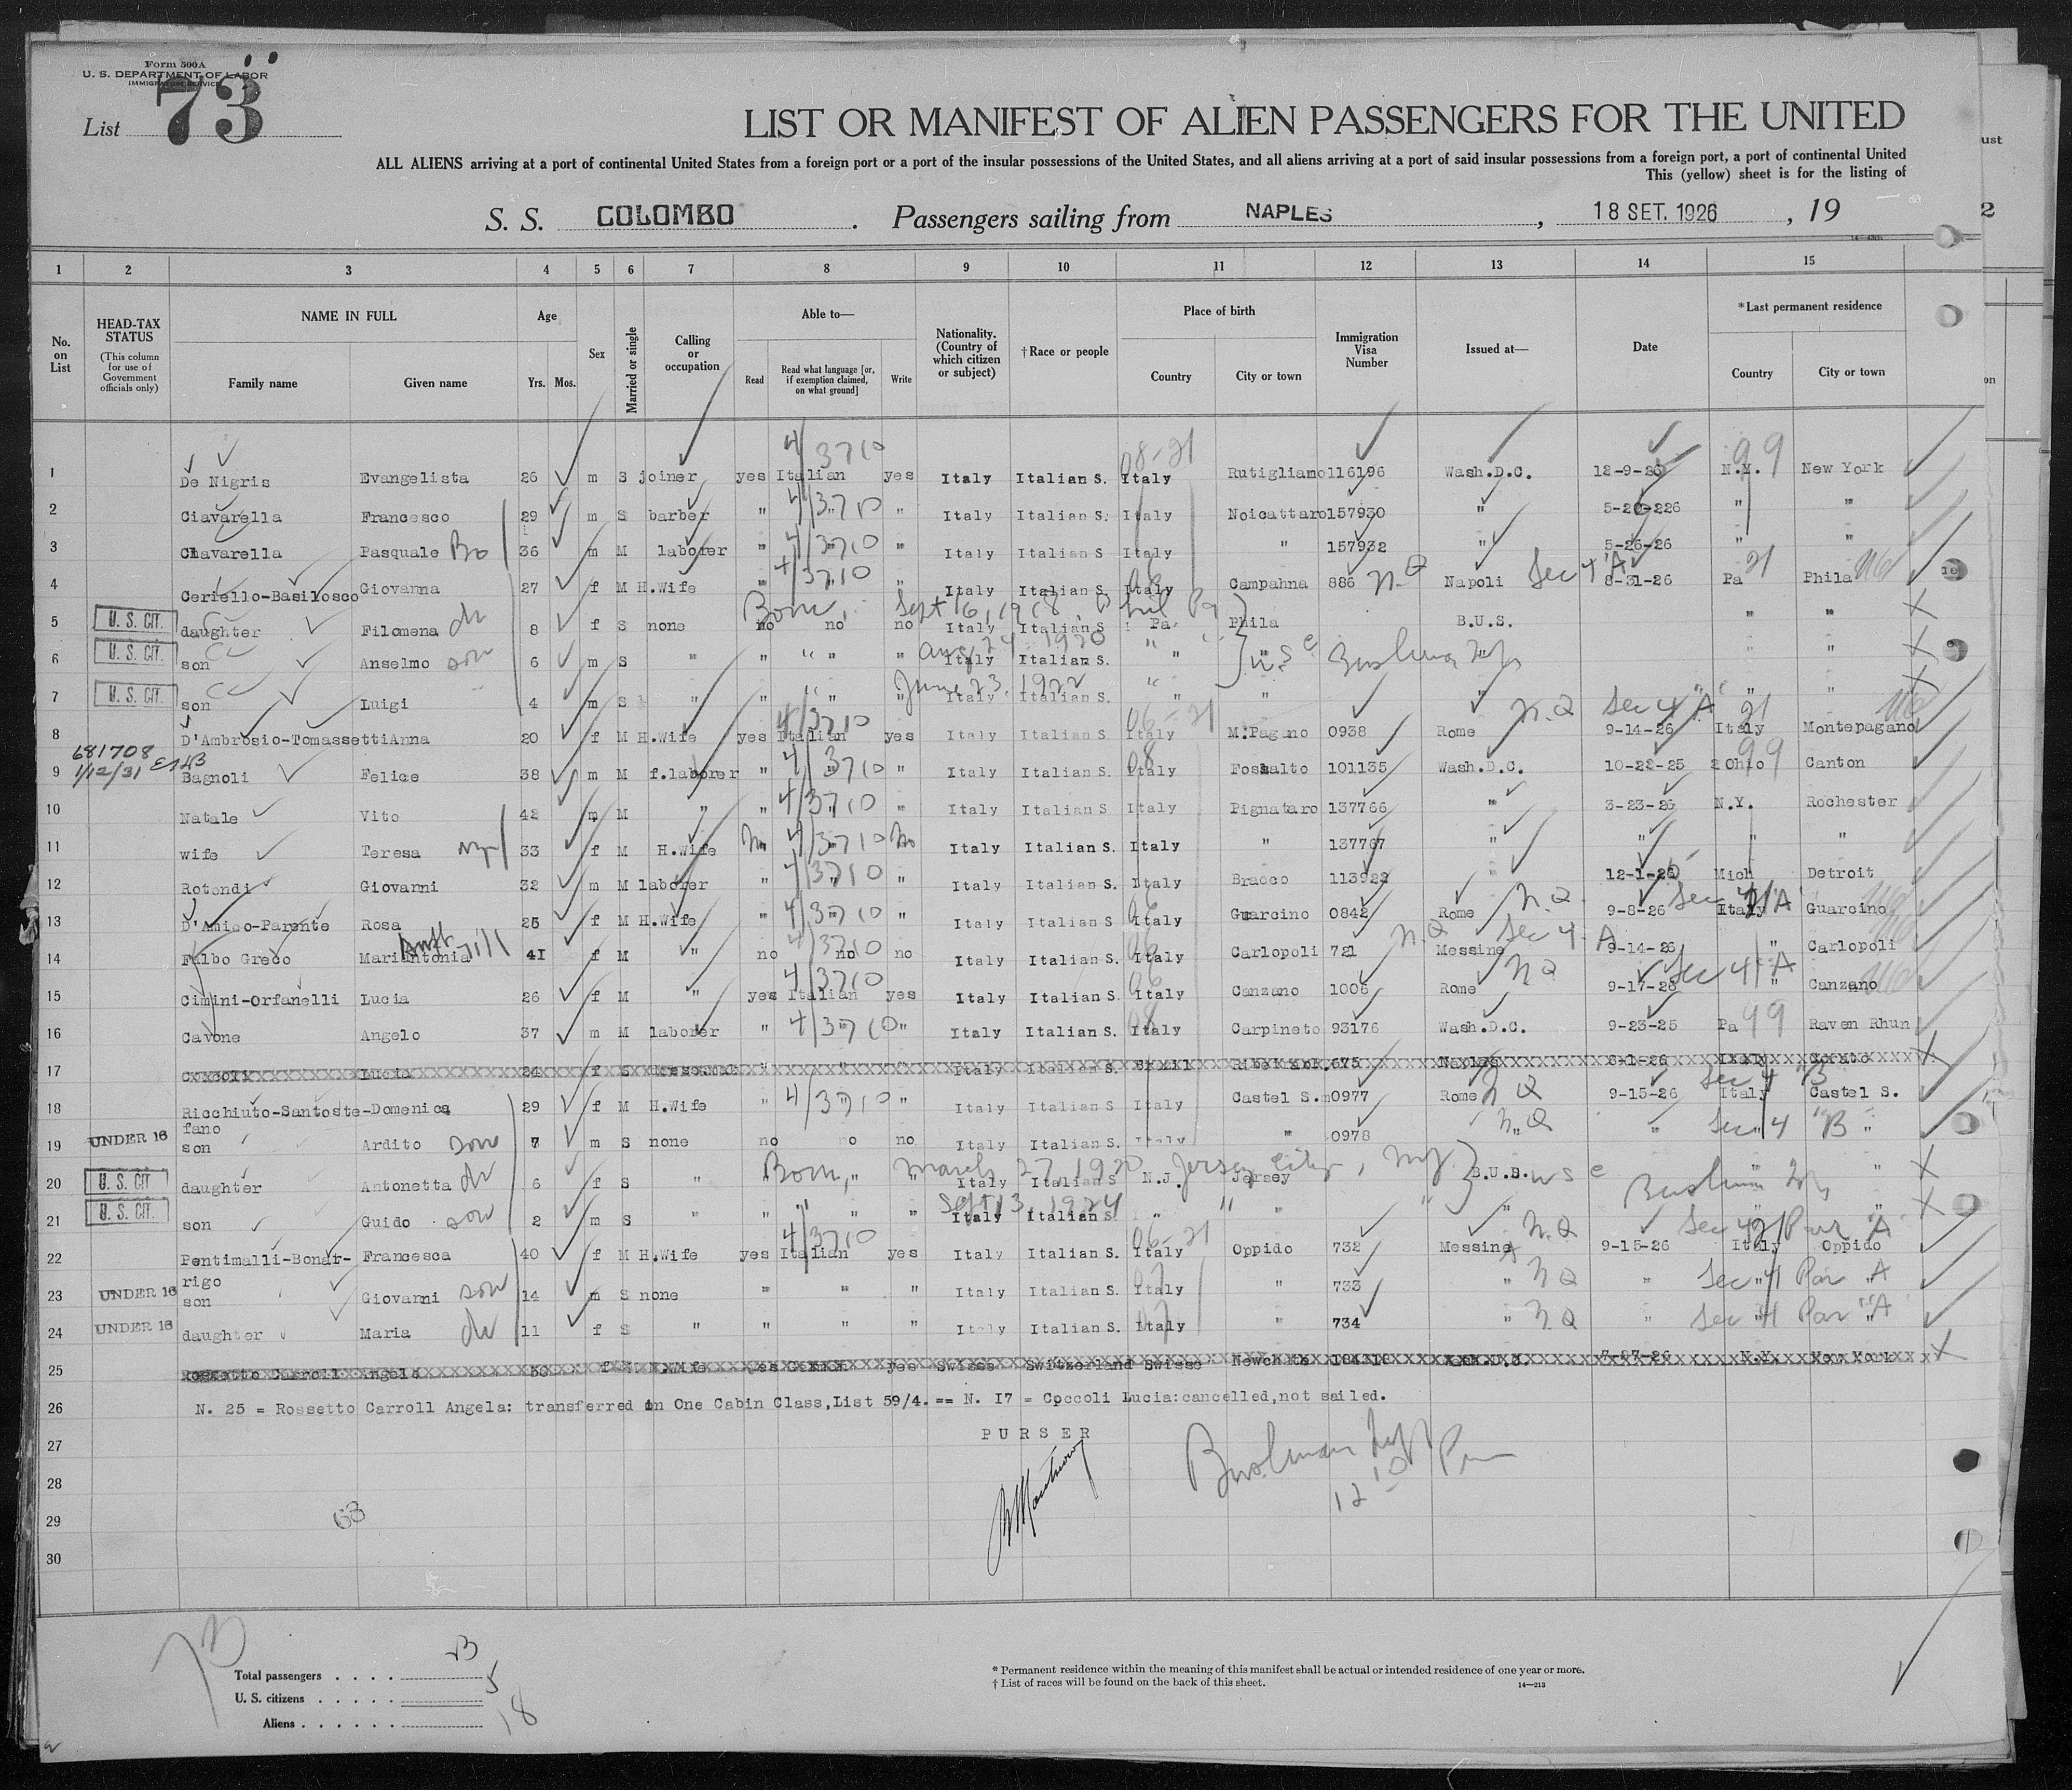 Form 500A
U. S. DEPARTMENT OF LABOR
IMMIGRATION SERVICE
List 73
LIST OR MANIFEST OF ALIEN PASSENGERS FOR THE UNITED
ALL ALIENS arriving at a port of continental United States from a foreign port or a port of the insular possessions of the United States, and all aliens arriving at a port of said insular possessions from a foreign port, a port of continental United
This (yellow) sheet is for the listing of
S. S. COLOMBO. Passengers sailing from NAPLES, 18 SET. 1926, 19
1 2 3 4 5 6 7 8 9 10 11 12 13 14 15
No. on List
HEAD-TAX STATUS (This column for use of Government officials only)
NAME IN FULL Family name Given name
Age Yrs. Mos.
Sex
Married or single
Calling or occupation
Able to— Read Read what language [or, if exemption claimed, on what ground] Write
Nationality. (Country of which citizen or subject)
†Race or people
Place of birth Country City or town
Immigration Visa Number
Issued at—
Date
*Last permanent residence Country City or town
4/3710 08-21 99
1 De Nigris Evangelista 26 m S joiner yes Italian yes Italy Italian S. Italy Rutigliano 116196 Wash.D.C. N.Y. New York
2 Ciavarella Francesco 29 m S barber " 4/3710 " Italy Italian S. Italy Noicattaro 157930 " " "
3 Ciavarella Pasquale Bro 36 m M laborer " 4/3710 " Italy Italian S Italy " 157932 " 5-26-26 " "
4 Ceriello-Basilosco Giovanna 27 f M H.Wife " 4/3710 " Italy Italian S. Italy Campahna 886 N.Q Napoli Sec 4 "A" 8-31-26 Pa 21 Phila
Born, Sept 16, 1918, Phil Pa
5 U. S. CIT. daughter Filomena 8 f S none no no no Italy Italian S Pa Phila B.U.S. " "
Aug 24 1920 " "
6 U. S. CIT. son Anselmo son 6 m S " " " " Italy Italian S. " " U S C " " "
June 23, 1922 "
7 U. S. CIT. son Luigi 4 m S " " " " Italy Italian S. " " " " "
4/3710 06-21 N.Q Sec 4 "A" 21
8 D'Ambrosio-Tomassetti Anna 20 f M H.Wife yes Italian yes Italy Italian S. Italy M.Pagano 0938 Rome 9-14-26 Italy Montepagano
681708
1/12/31
9 Bagnoli Felice 38 m M f.laborer " 4/3710 " Italy Italian S. Italy Fossalto 101135 Wash.D.C. 10-22-25 Ohio 99 Canton
10 Natale Vito 42 m M " " 4/3710 " Italy Italian S. Italy Pignataro 137766 " 3-23-26 N.Y. Rochester
11 wife Teresa 33 f M H.Wife No 4/3710 No Italy Italian S. Italy " 137767 " " " "
12 Rotondi Giovanni 32 m M laborer " 4/3710 " Italy Italian S. Italy Bracco 113922 " Mich Detroit
13 D'Amico-Parente Rosa 25 f M H.Wife " 4/3710 " Italy Italian S. Italy Guarcino 0842 Rome N.Q. 9-8-26 Sec 4 "A" Italy Guarcino
14 Falbo Greco Mariantonia 41 f M " no 4/3710 no no Italy Italian S. Italy Carlopoli 721 N.Q Messina Sec 4 A 9-14-26 " Carlopoli
15 Cimini-Orfanelli Lucia 26 f M " yes 4/3710 Italian yes Italy Italian S. Italy Canzano 1006 Rome N.Q 9-17-26 Sec 4 "A" " Canzano
16 Cavone Angelo 37 m M laborer " 4/3710 " Italy Italian S. Italy Carpineto 93176 Wash.D.C. 9-23-25 Pa 99 Raven Rhun
17 Coccoli Lucia 24 f S " " " Italy Italian S. Brazil 675 Naples 6-1-26 Italy
18 Ricchiuto-Santoste-Domenica 29 f M H.Wife " 4/3710 " Italy Italian S Italy Castel S. 0977 Rome N Q 9-15-26 Sec 4 "B" Italy Castel S.
fano
19 UNDER 16 son Ardito son 7 m S none no no no Italy Italian S. Italy " 0978 " N.Q " Sec 4 "B" "
Born, March 27 1920 Jersey City, N.J.
20 U. S. CIT. daughter Antonetta 6 f S " " " Italy Italian S N.J. Jersey B.U.S. U S C " "
Sept 13, 1924 " "
21 U. S. CIT. son Guido son 2 m S " " " " Italy Italian S. " " " " "
4/3710 06-21 N.Q Sec 4 Par "A"
22 Pentimalli-Bonar- Francesca 40 f M H.Wife yes Italian yes Italy Italian S. Italy Oppido 732 Messina 9-15-26 Italy Oppido
rigo
23 UNDER 16 son Giovanni son 14 m S none " " " Italy Italian S. Italy " 733 " N Q " Sec 4 Par "A"
24 UNDER 16 daughter Maria 11 f S " " " " Italy Italian S. Italy " 734 " N.Q " Sec 4 Par "A"
25 Rossetto Carroll Angela 50 f M H.Wife yes German yes Swisse Switzerland Swisse 7-27-26 N.Y. New York
26 N. 25 = Rossetto Carroll Angela: transferred in One Cabin Class, List 59/4. == N. 17 = Coccoli Lucia: cancelled, not sailed.
27 PURSER
28 Bushman Insp
29 12 10 Pm
30
63
Total passengers . . . . 23
U. S. citizens . . . . . 5
Aliens . . . . . . 18
* Permanent residence within the meaning of this manifest shall be actual or intended residence of one year or more.
† List of races will be found on the back of this sheet.
14—213